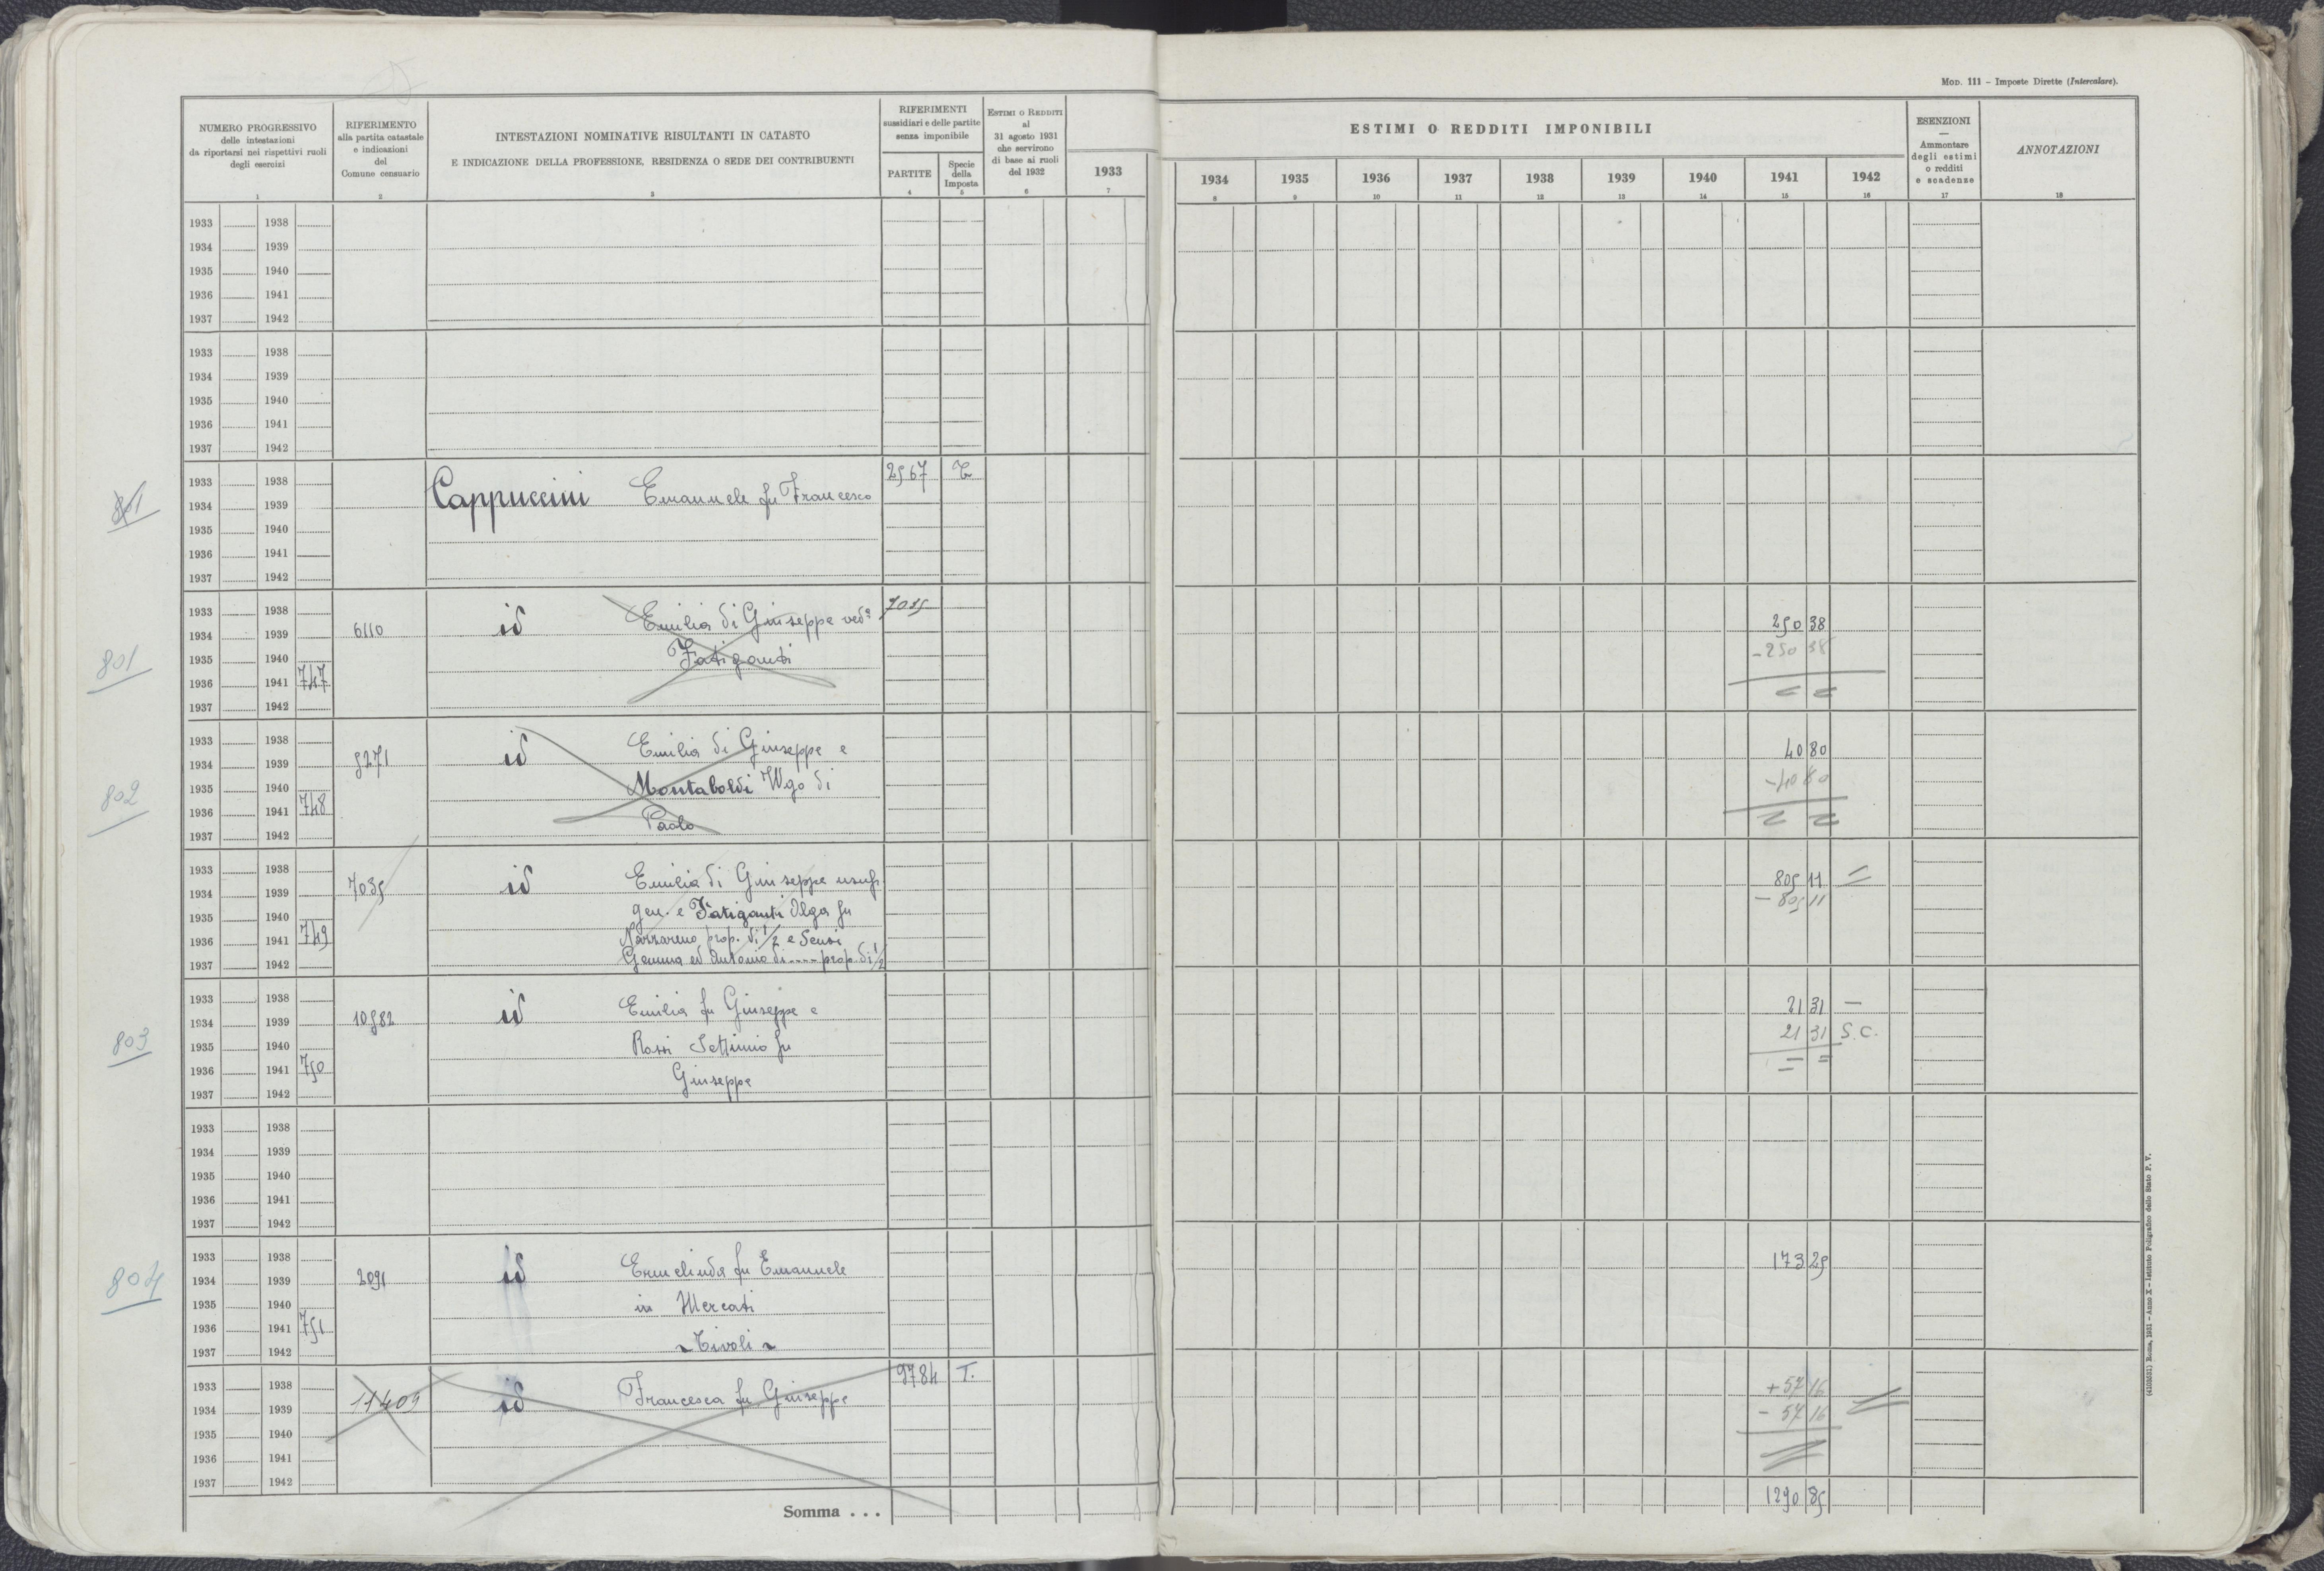 MOD. 111 – Imposte Dirette (Intercalare).
NUMERO PROGRESSIVO
delle intestazioni
da riportarsi nei rispettivi ruoli
degli esercizi
1
RIFERIMENTO
alla partita catastale
e indicazioni
del
Comune censuario
2
INTESTAZIONI NOMINATIVE RISULTANTI IN CATASTO
E INDICAZIONE DELLA PROFESSIONE, RESIDENZA O SEDE DEI CONTRIBUENTI
3
RIFERIMENTI
sussidiari e delle partite
senza imponibile
PARTITE
4
Specie
della
Imposta
5
ESTIMI O REDDITI
al
31 agosto 1931
che servirono
di base ai ruoli
del 1932
6
1933
7
ESTIMI O REDDITI IMPONIBILI
1934 1935 1936 1937 1938 1939 1940 1941 1942
8 9 10 11 12 13 14 15 16
ESENZIONI
—
Ammontare
degli estimi
o redditi
e scadenze
17
ANNOTAZIONI
18
1933 1938
1934 1939
1935 1940
1936 1941
1937 1942
1933 1938
1934 1939
1935 1940
1936 1941
1937 1942
1933 1938 2567 T
801 1934 1939 Cappuccini Emanuele fu Francesco
1935 1940
1936 1941
1937 1942
1933 1938 7035
1934 1939 6110 id Emilia di Giuseppe vedª 250 38
801 1935 1940 Fatiganti - 250 38
1936 1941 747 = =
1937 1942
1933 1938
1934 1939 5271 id Emilia di Giuseppe e 40 80
802 1935 1940 Montaboldi Ugo di - 40 80
1936 1941 748 = =
1937 1942 Paolo
1933 1938
1934 1939 7035 id Emilia di Giuseppe usufr. 805 11 =
1935 1940 gen. e Fatiganti Olga fu - 805 11
1936 1941 749 Nazzareno prop. di 1/2 e Sensi
1937 1942 Gemma ed Antonio di ---- prop. di 1/2
1933 1938
1934 1939 10582 id Emilia fu Giuseppe e 21 31 —
803 1935 1940 Rossi Settimio fu 21 31 S.C.
1936 1941 750 Giuseppe = =
1937 1942
1933 1938
1934 1939
1935 1940
1936 1941
1937 1942
1933 1938
804 1934 1939 2091 id Ermelinda fu Emanuele 173 25
1935 1940 in Mercati
1936 1941 751
1937 1942 ~ Tivoli ~
1933 1938 9784 T.
1934 1939 11409 id Francesca fu Giuseppe + 57 16
1935 1940 - 57 16 =
1936 1941 =
1937 1942
Somma . . . 1290 85
(4105631) Roma, 1931 – Anno X – Istituto Poligrafico dello Stato P. V.